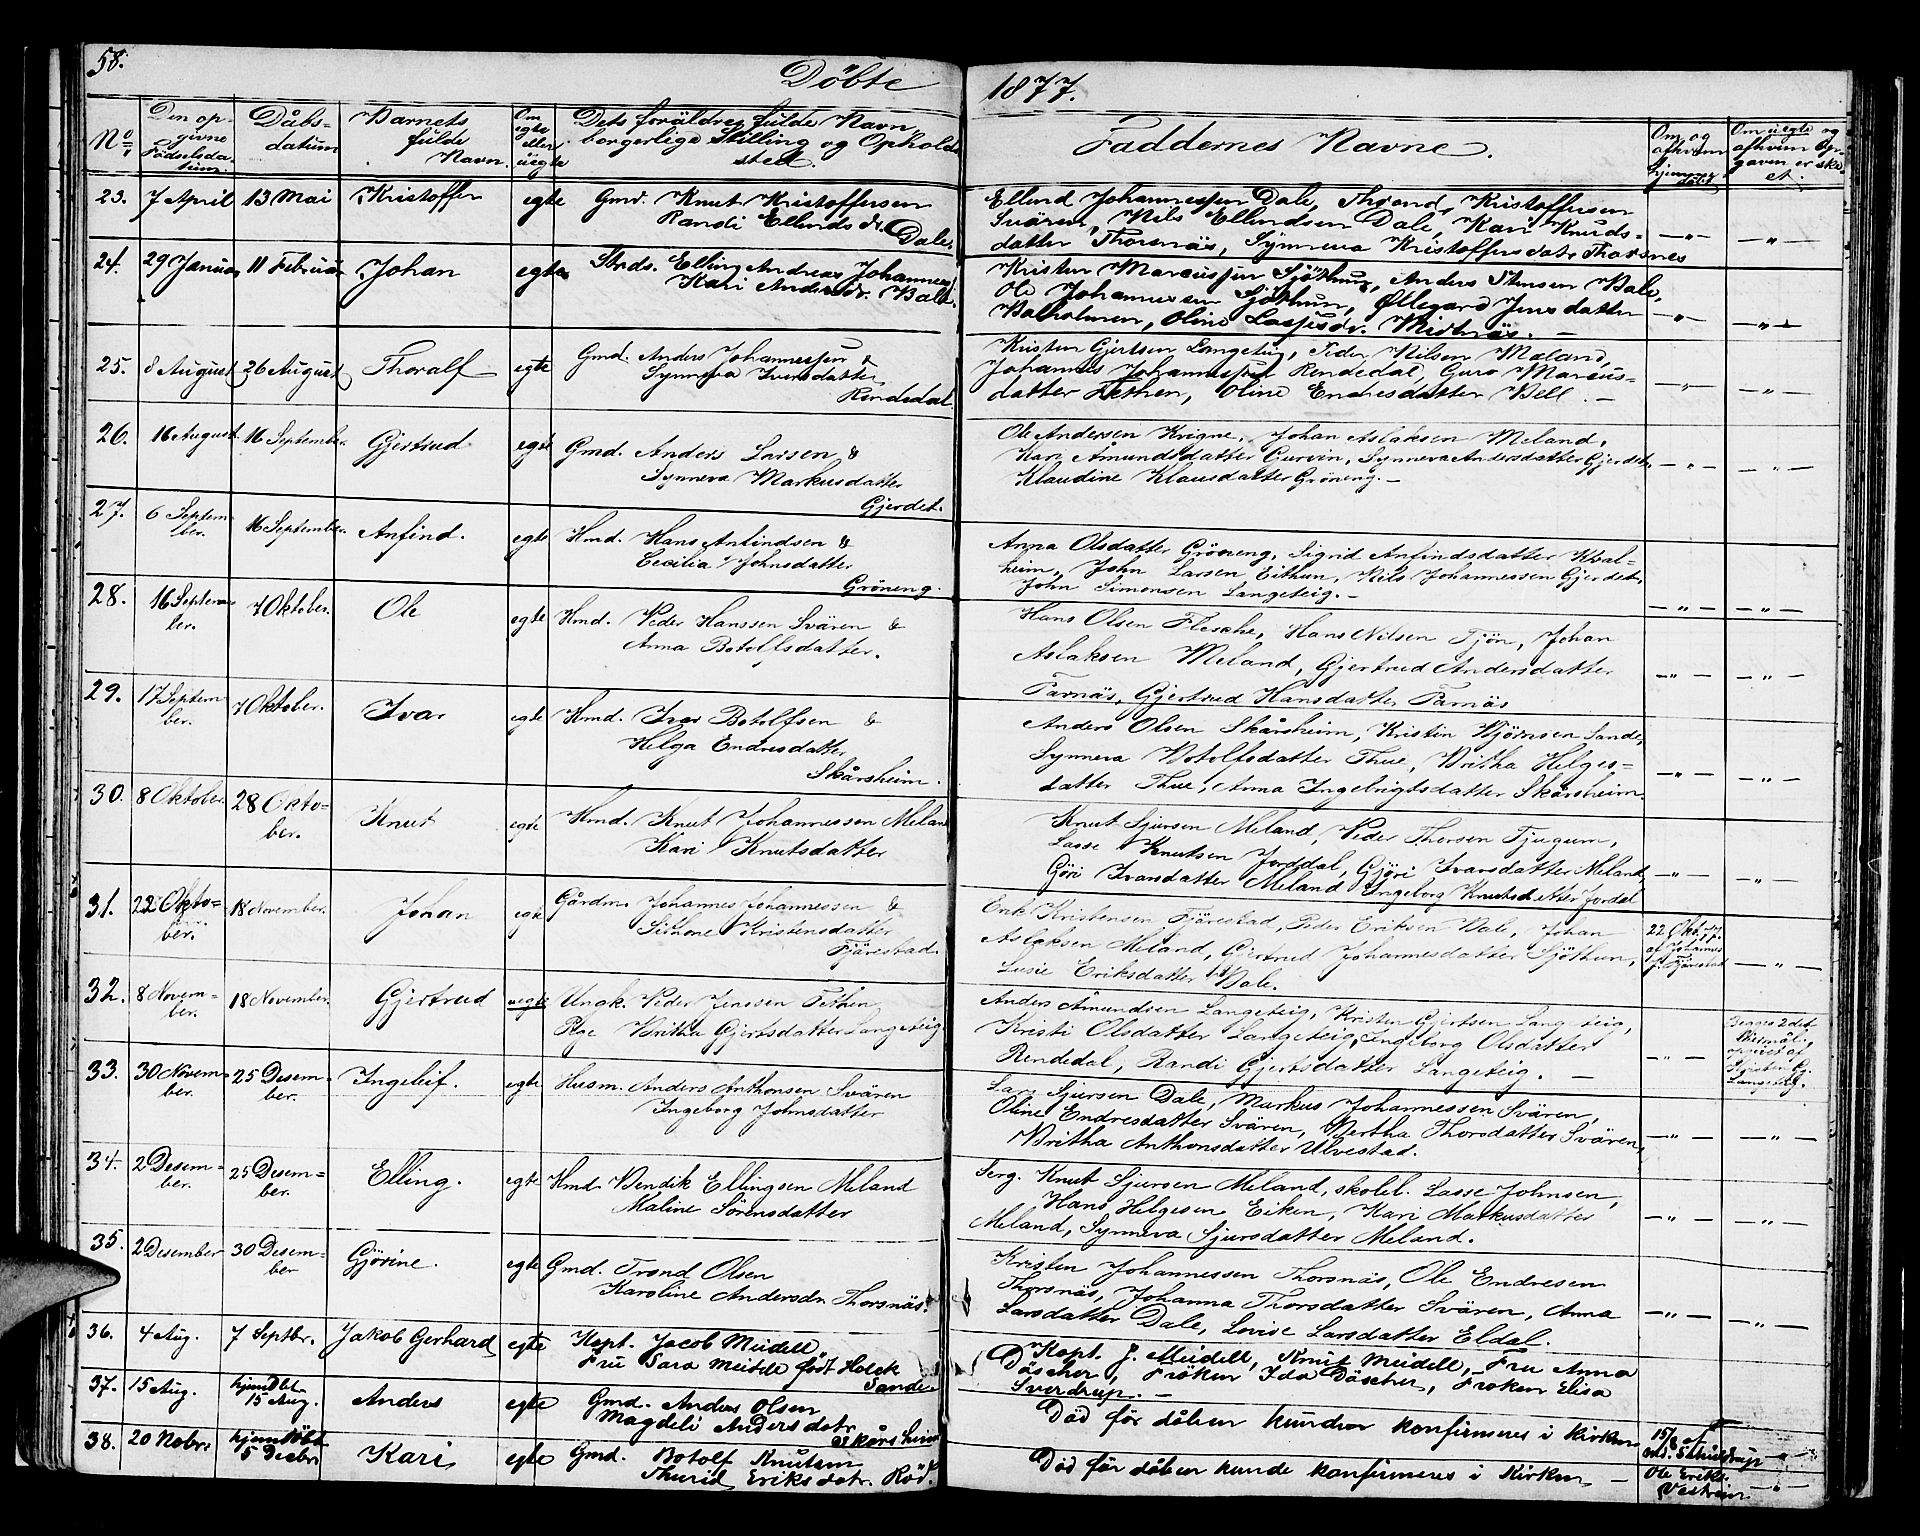 58.
Döbte
1877.
No
Den op-
givne
Födselsda-
tum.
Dåbs-
datum
Barnets
fulde
Navn.
Om
egte
eller
uegte
Dets foräldres fulde Navn,
borgerlige Stilling og Opholds-
sted.
Faddernes Navne.
Om og
afhvem
hjemme-
döbt
Om uegte og
afhvem Op-
gaven er ske-
et.
23. 7 April 13 Mai Kristoffer egte Gmd. Knut Kristoffersen
Randi Ellends dr. Dale.
Ellend Johannessen Dale, Thrond Kristoffersen
Svären, Nils Ellendsen Dale, Kari Knuds-
datter Thorsnäs, Synneva Kristoffersdatr Thorsnes
24. 29 Januar 11 Februar Johan egte Strds. Elling Andreas Johannesen
Kari Andersdr. Bale.
Kristen Marcussen Sjöthun, Anders Stensen Bale,
Ole Johannesen Sjöthun, Øllegard Jensdatter
Balholmen, Oline Lassesdr. Midtnäs. —
25. 8 August 26 August Thoralf egte Gmd. Anders Johannessen &
Synneva Iversdatter
Rendedal
Kristen Gjertsen Langeteig, Peder Nilsen Maland,
Johannes Johannessen Rendedal, Guro Marcus-
datter Fethen, Oline Endresdatter Bell. —
26. 16 August 16 September. Gjertrud egte Gmd. Anders Larsen &
Synneva Markusdatter
Gjerdet.
Ole Andersen Krigne, Johan Aslaksen Meland,
Kari Amundsdatter Curvin, Synneva Andersdatter Gjerdet,
Klaudine Klausdatter Gröneng. —
27. 6 Septem-
ber. 16 September. Anfind. egte Hmd. Hans Anfindsen &
Cecilia Johnsdatter
Gröneng.
Anna Olsdatter Gröneng, Sigrid Anfindsdatter Kval-
heim, John Larsen Eithun, Nils Johannessen Gjerdet,
John Simonsen Langeteig. —
28. 16 Septem-
ber. 7 Oktober. Ole egte Hmd. Peder Hanssen Svären &
Anna Botolfsdatter.
Hans Olsen Flesche, Hans Nilsen Tjön, Johan
Aslaksen Meland, Gjertrud Andersdatter
Farnäs, Gjertrud Hansdatter Farnäs
29. 17 Septem-
ber. 7 Oktober. Ivar egte Hmd. Iver Botolfsen &
Helga Endresdatter
Skårsheim.
Anders Olsen Skårsheim, Kristin Björnsen Sande,
Synneva Botolfsdatter Thue, Britha Helges-
datter Thue, Anna Ingebrigtsdatter Skårsheim.
30. 8 Oktober. 28 Okto-
ber. Knut egte Hmd. Knut Johannessen Meland
Kari Knutsdatter
Knut Sjursen Meland, Peder Thorsen Tjugum,
Lasse Knutsen Jorddal, Gjöri Ivarsdatter Meland,
Göri Ivarsdatter Meland Ingeborg Knutsdatter Jordal
31. 22 Okto-
ber. 18 November. Johan egte Gårdm. Johannes Johannessen &
Simone Kristensdatter
Fjärestad.
Erik Kristensen Fjärestad, Peder Eriksen Bale, Johan
Aslaksen Meland, Gjertrud Johannesdatter Sjöthun,
Lusie Eriksdatter Bale.
22 Okt. 77.
af Johannes
J. Fjärestad
32. 8 Novem-
ber. 18 November. Gjertrud uegte Ungk. Peder Jenssen Fethen
Pige Britha Gjertsdatter Langeteig
Anders Amundsen Langeteig, Kristen Gjertsen Langeteig,
Kristi Olsdatter Langeteig, Ingeborg Olsdatter
Rendedal, Randi Gjertsdatter Langeteig. —
Begges 2det
opgivet af
Kristen Gj.
Langeteig.
33. 30 Novem-
ber. 25 Desem-
ber. Ingeleif. egte Husm. Anders Anthonsen Svären
Ingeborg Johnsdatter
Lars Sjursen Dale, Markus Johannessen Svären,
Oline Endresdatter Svären, Bertha Thorsdatter Svären,
Britha Anthonsdatter Ulvestad.
34. 2 Desem-
ber. 25 Desem-
ber. Elling. egte Hmd. Bendik Ellingsen Meland
Maline Sörensdatter
Serg. Knut Sjursen Meland, skolel. Lasse Johnsen,
Hans Helgesen Eiken, Kari Markusdatter
Meland, Synneva Sjursdatter Meland.
35. 2 Desember 30 Desem-
ber Gjörine. egte Gmd. Trond Olsen
Karoline Andersdr. Thorsnäs.
Kristen Johannessen Thorsnäs, Ole Endresen
Thorsnäs, Johanna Thorsdatter Svären, Anna
Larsdatter Dale, Lovise Larsdatter Eldal.
36. 4 Aug. 7 Septbr. Jakob Gerhard egte Kapt. Jacob Meidell,
Fru Sara Meidell födt Holck
Sande
Kapt. J. Meidell, Knut Meidell, Fru Anna
Döscher, Fröken Ida Döscher, Fröken Elisa
Sverdrup. —
37. 15 Aug. hjemdbt
15 Aug. Anders egte Gmd. Anders Olsen
Magdeli Andersdatr.
Skårsheim
Död för dåben kunde konfirmeres i Kirken
15/8 af
Schieldrup
38. 20 Nobr. hjemdöbt
5 Decbr Kari egte Gmd. Botolf Knutsen
Thurid Eriksdatr. Röd.
Död för dåben kunde konfirmeres i Kirken —
Ole Eriks.
Vestrein